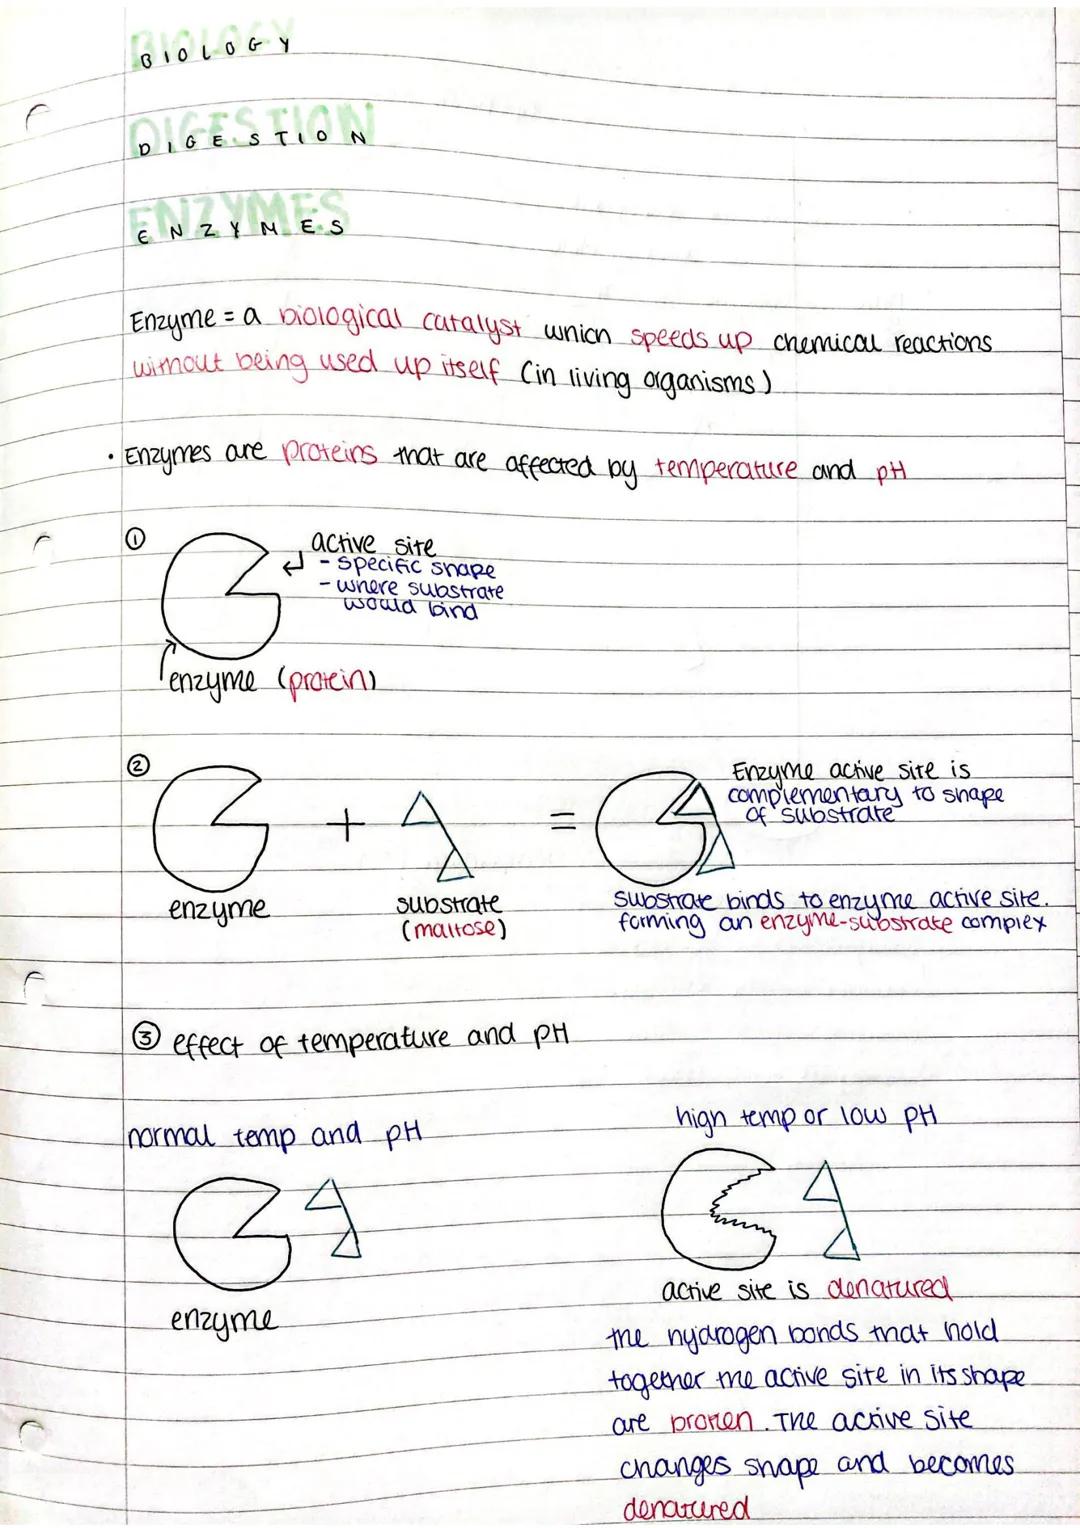 BIOLOGY
BIOLOGY
DIGESTION
DIGESTION
ENZYMES
ENZYMES
Enzyme = a biological catalyst which speeds up chemical reactions
without being used up itself (in living organisms)
• Enzymes are proteins that are affected by temperature and pH
① active site
- specific shape
- where substrate
would bind
enzyme (protein)
②
+
=
Enzyme active site is
complementary to shape
of substrate
enzyme
substrate
(maltose)
substrate binds to enzyme active site.
forming an enzyme-substrate complex
③ effect of temperature and pH
normal temp and pH
enzyme
high temp or low pH
active site is denatured
the hydrogen bonds that hold
together the active site in its shape
are broken. The active site
changes shape and becomes
denatured